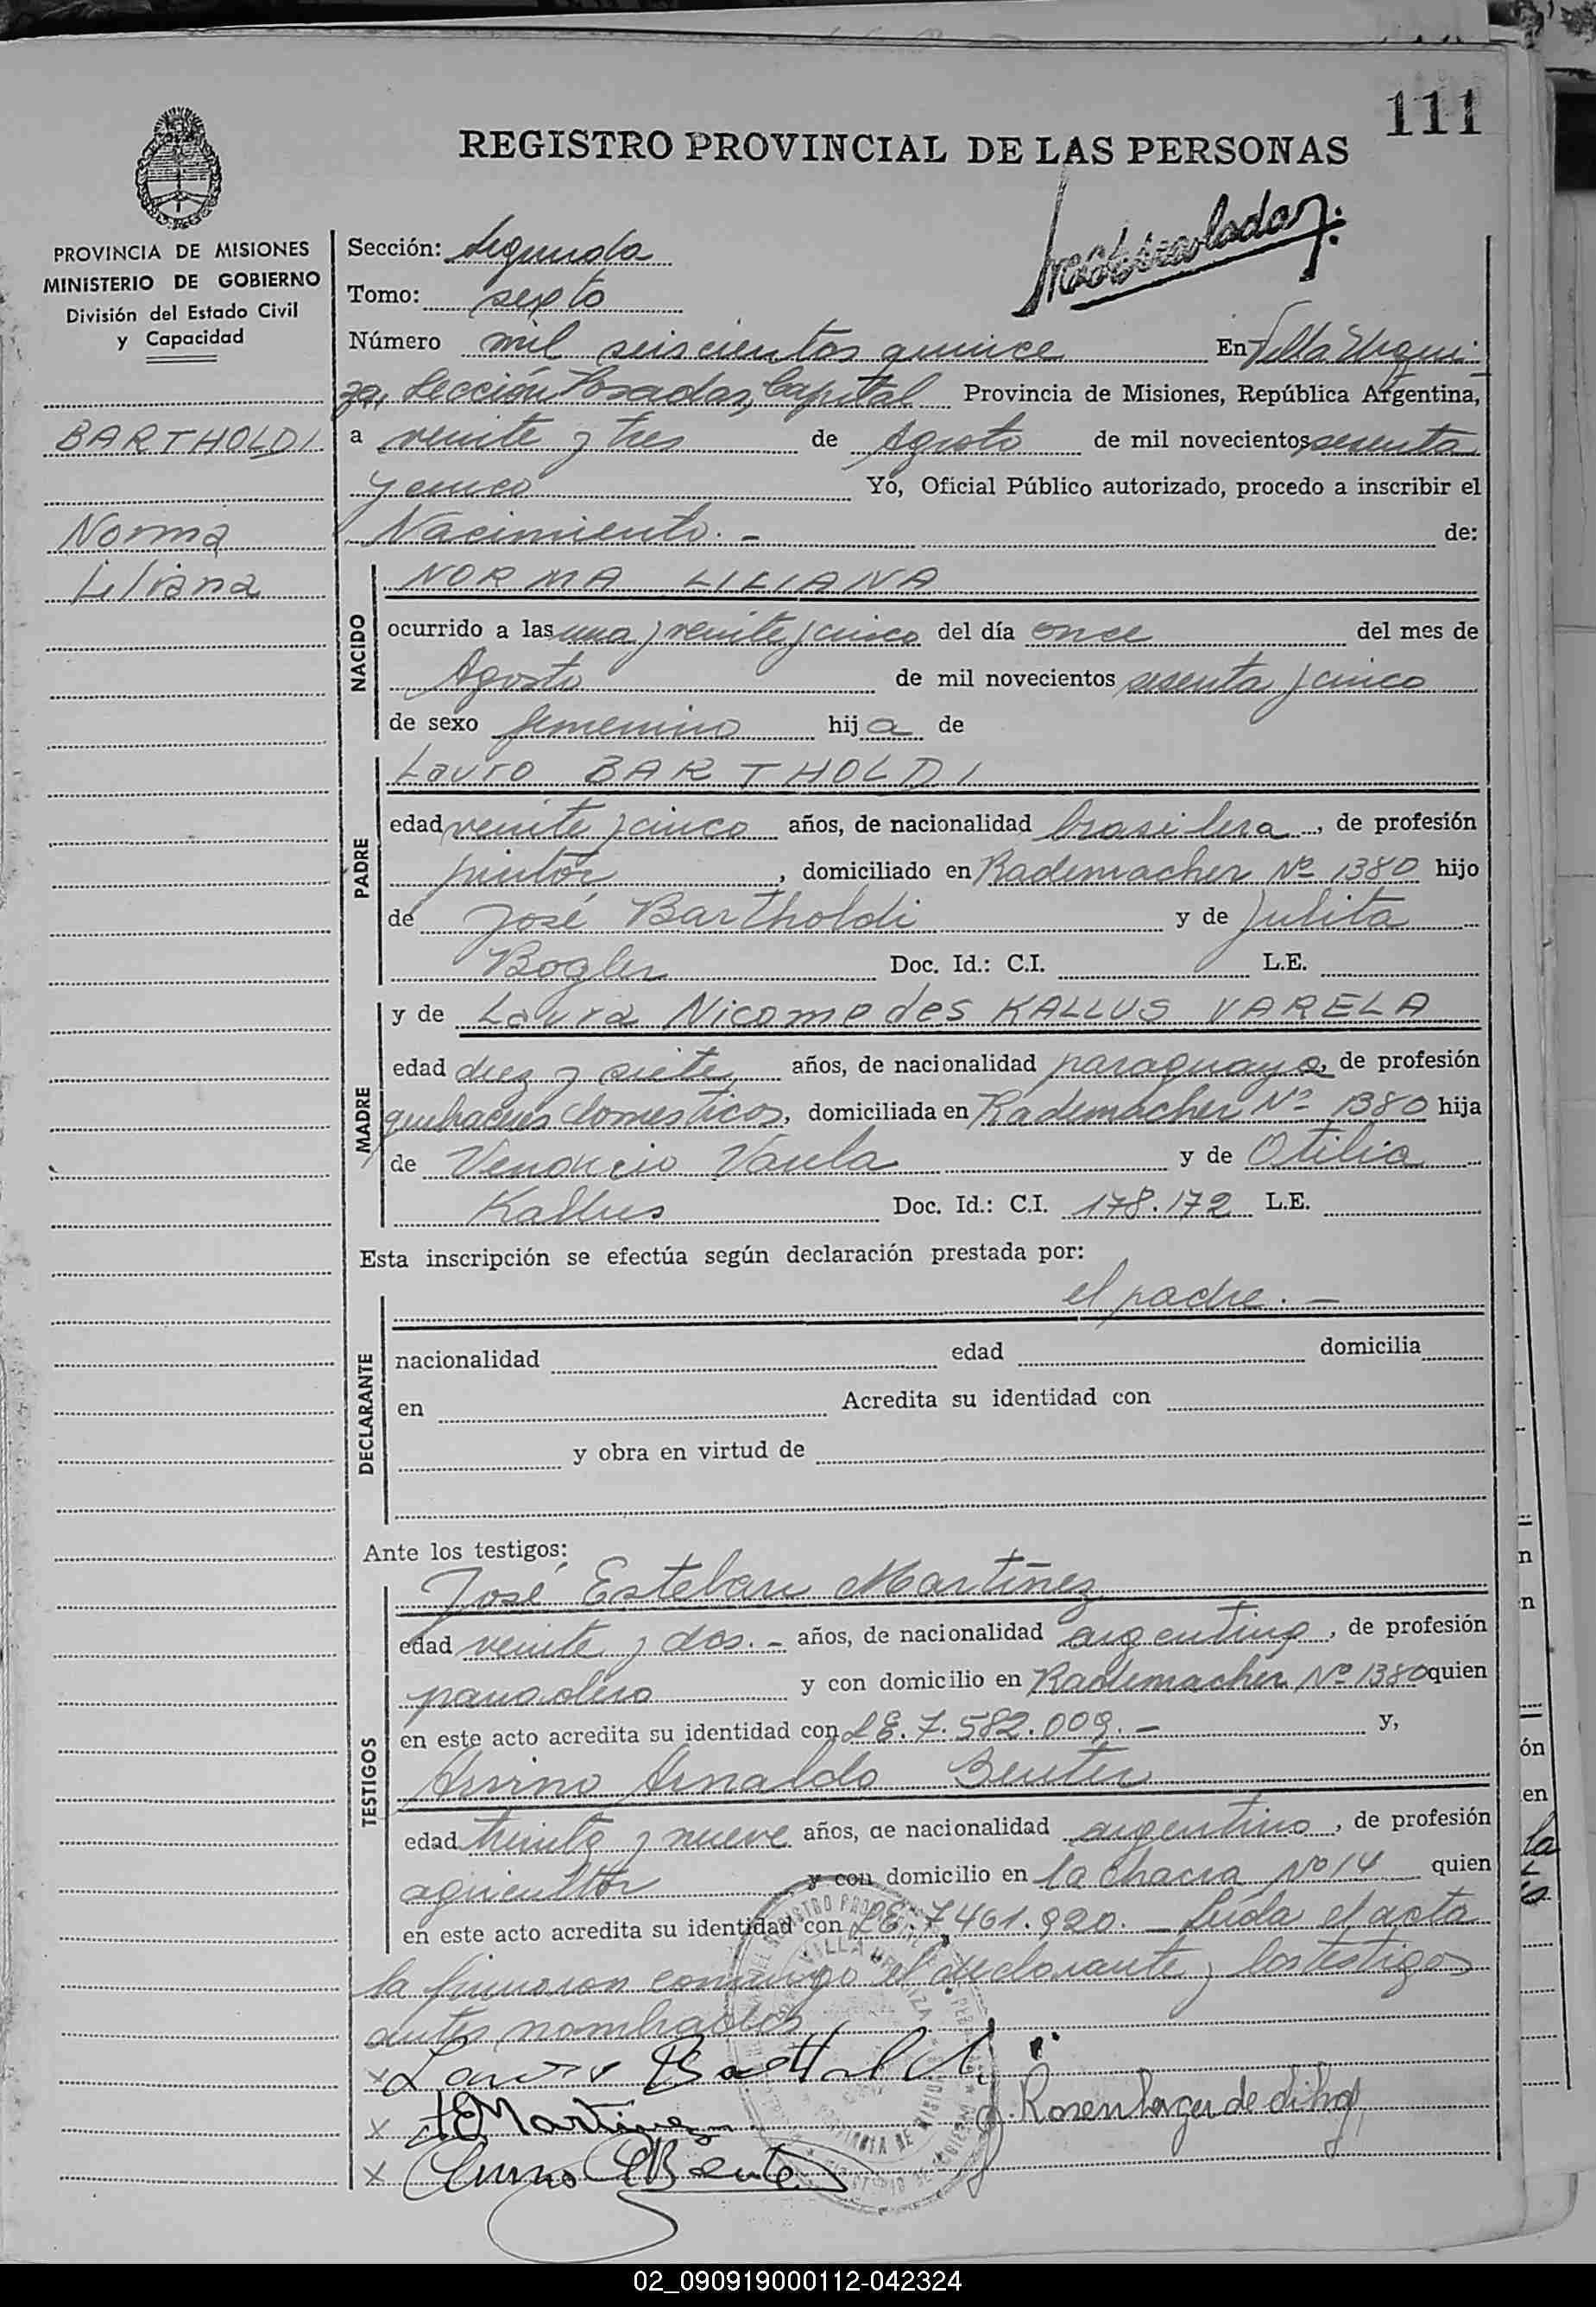 111
REGISTRO PROVINCIAL DE LAS PERSONAS
PROVINCIA DE MISIONES
MINISTERIO DE GOBIERNO
División del Estado Civil
y Capacidad
BARTHOLDI
Norma
Liliana
Sección: Segunda
Tomo: sexto
Número mil seiscientos quince En Villa Urqui-
za, Sección Posadas, Capital Provincia de Misiones, República Argentina,
a veinte y tres de Agosto de mil novecientos sesenta
y cinco Yo, Oficial Público autorizado, procedo a inscribir el
Nacimiento. - de:
NACIDO
NORMA LILIANA
ocurrido a las una y veinte y cinco del día once del mes de
Agosto de mil novecientos sesenta y cinco
de sexo femenino hija de
PADRE
Lauro BARTHOLDI
edad veinte y cinco años, de nacionalidad brasilera, de profesión
pintor, domiciliado en Rademacher Nº 1380 hijo
de José Bartholdi y de Julita
Bogler Doc. Id.: C.I. L.E.
MADRE
y de Laura Nicomedes KALLUS VARELA
edad diez y siete años, de nacionalidad paraguaya, de profesión
quehaceres domésticos, domiciliada en Rademacher Nº 1380 hija
de Venancio Varela y de Otilia
Kallus Doc. Id.: C.I. 178.172 L.E.
Esta inscripción se efectúa según declaración prestada por:
DECLARANTE
el padre. -
nacionalidad edad domicilia
en Acredita su identidad con
y obra en virtud de
Ante los testigos:
TESTIGOS
José Esteban Martínez
edad veinte y dos. - años, de nacionalidad argentino, de profesión
panadero y con domicilio en Rademacher Nº 1380 quien
en este acto acredita su identidad con LE. 7.582.009. - y,
Arnaldo Benter
edad treinta y nueve años, de nacionalidad argentino, de profesión
agricultor y con domicilio en la chacra Nº 14 quien
en este acto acredita su identidad con LE. 7.461.920. - Leída el acta
la firmaron conmigo el declarante y los testigos
antes nombrados
x Lauro Bartholdi
x JEMartinez
x Benter
02_090919000112-042324